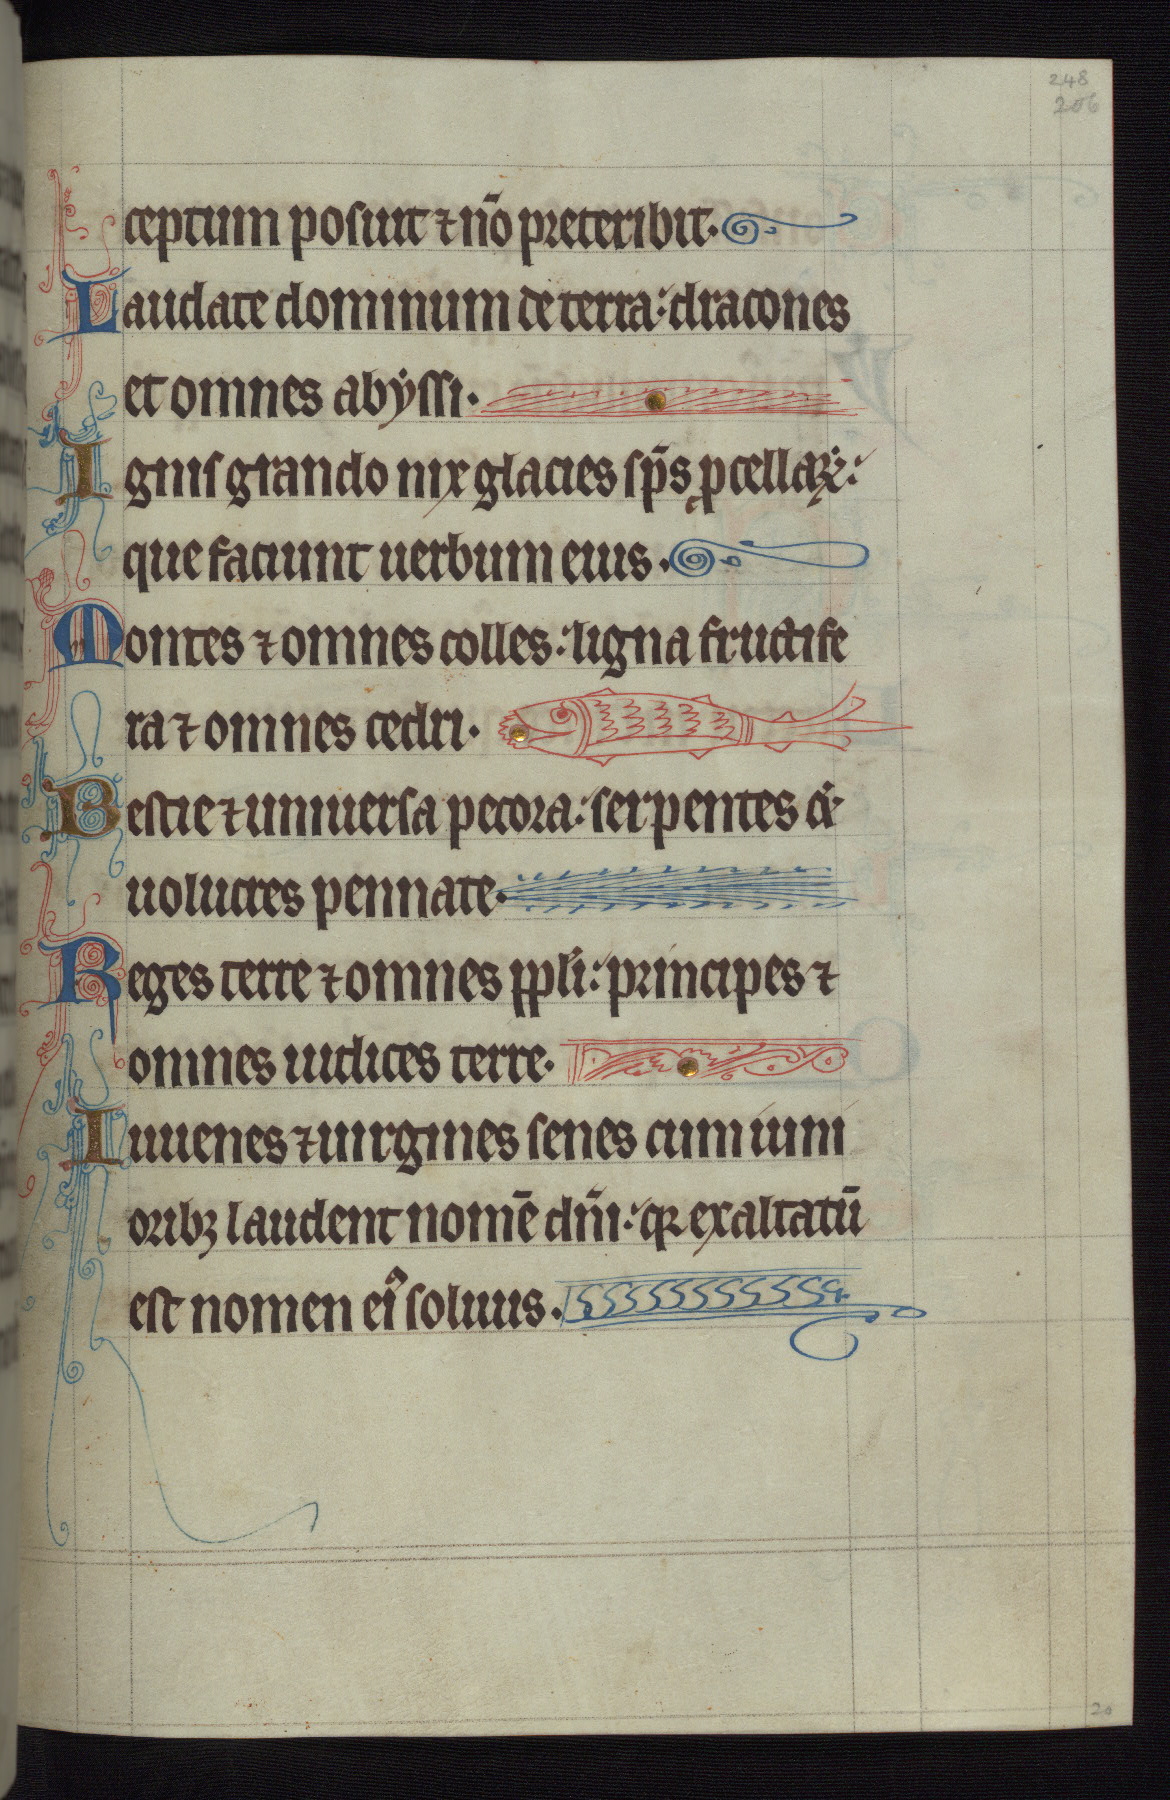 248
206
ceptum posuit ⁊ nō preteribit.
Laudate dominum de terra: dracones
et omnes abẏssi.
Ignis grando nix glacies sp̄s ꝓcellaꝝ:
que faciunt uerbum eius.
Montes ⁊ omnes colles: ligna fructife
ra ⁊ omnes cedri.
Bestie ⁊ uniuersa pecora: serpentes ⁊
uolucres pennate.
Reges terre ⁊ omnes ppl̓i: principes ⁊
omnes iudices terre.
Iuuenes ⁊ uirgines senes cum iuni
oribꝫ laudent nomē dn̄i: qꝛ exaltatū
est nomen ei᷒ soliuus.
20